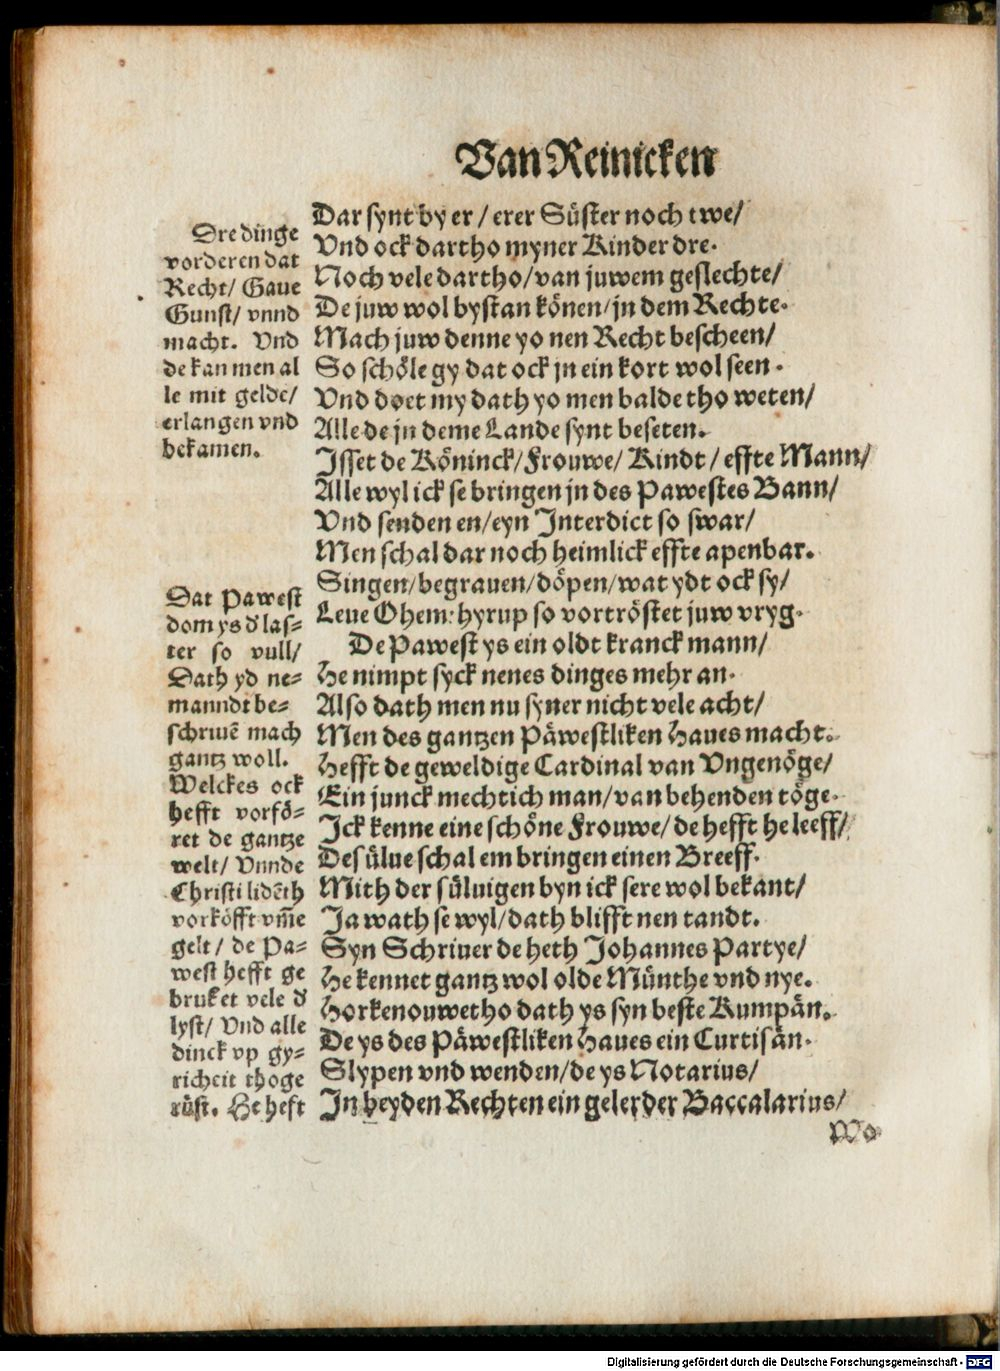 Van Reinicken
Dre dinge
vorderen dat
Recht/ Gaue
Gunst/ vnnd
macht. Vnd
de kan men al
le mit gelde/
erlangen vnd
bekamen.
Dat Pawest
dom ys d' las-
ter so vull/
Dath yd ne-
manndt be-
schriuē mach
gantz woll.
Welckes ock
hefft vorfö-
ret de gantze
welt/ Vnnde
Christi lidēth
vorköfft vm̄e
gelt / de Pa-
west hefft ge
bruket vele d'
lyst/ Vnd alle
dinck vp gy-
richeit thoge
rüst. He heft
Dar synt by er / erer Süster noch twe/
Vnd ock dartho myner Kinder dre.
Noch vele dartho/van juwem geslechte/
De juw wol bystan könen/jn dem Rechte.
Mach juw denne yo nen Recht bescheen/
So schöle gy dat ock jn ein kort wol seen.
Vnd doet my dath yo men balde tho weten/
Alle de jn deme Lande synt beseten.
Isset de Köninck/Frouwe/ Kindt / effte Mann/
Alle wyl ick se bringen jn des Pawestes Bann/
Vnd senden en/eyn Interdict so swar/
Men schal dar noch heimlick effte apenbar.
Singen/begrauen/döpen/wat ydt ock sy/
Leue Ohem: hyrup so vortröstet juw vryg.
De Pawest ys ein oldt kranck mann/
He nimpt syck nenes dinges mehr an.
Also dath men nu syner nicht vele acht/
Men des gantzen Päwestliken Haues macht.
Hefft de geweldige Cardinal van Vngenöge/
Ein junck mechtich man/van behenden töge.
Ick kenne eine schöne Frouwe/de hefft he leeff/
De sülue schal em bringen einen Breeff.
Mith der süluigen byn ick sere wol bekant/
Ja wath se wyl/dath blifft nen tandt.
Syn Schriuer de heth Johannes Partye/
He kennet gantz wol olde Münthe vnd nye.
Horkenouwetho dath ys syn beste Kumpän.
De ys des Päwestliken Haues ein Curtisän.
Slypen vnd wenden/de ys Notarius/
In beyden Rechten ein gelerder Baccalarius/
Wo
Digitalisierung gefördert durch die Deutsche Forschungsgemeinschaft - DFG